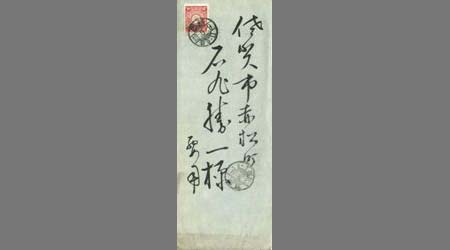 佐賀市赤松町
石丸勝一様
要用